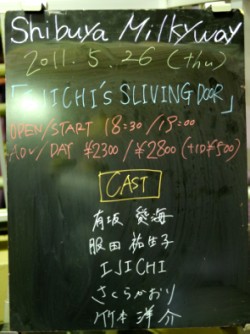 Shibuya Milkyway
2011.5.26 (thu)
「IJICHI's SLIVING DOOR」
OPEN/START 18:30/19:00
ADV/DAY ¥2300/¥2800 (+1D¥500)
CAST
有坂 愛海
服田 祐生子
IJICHI
さくらかおり
竹本 洋介